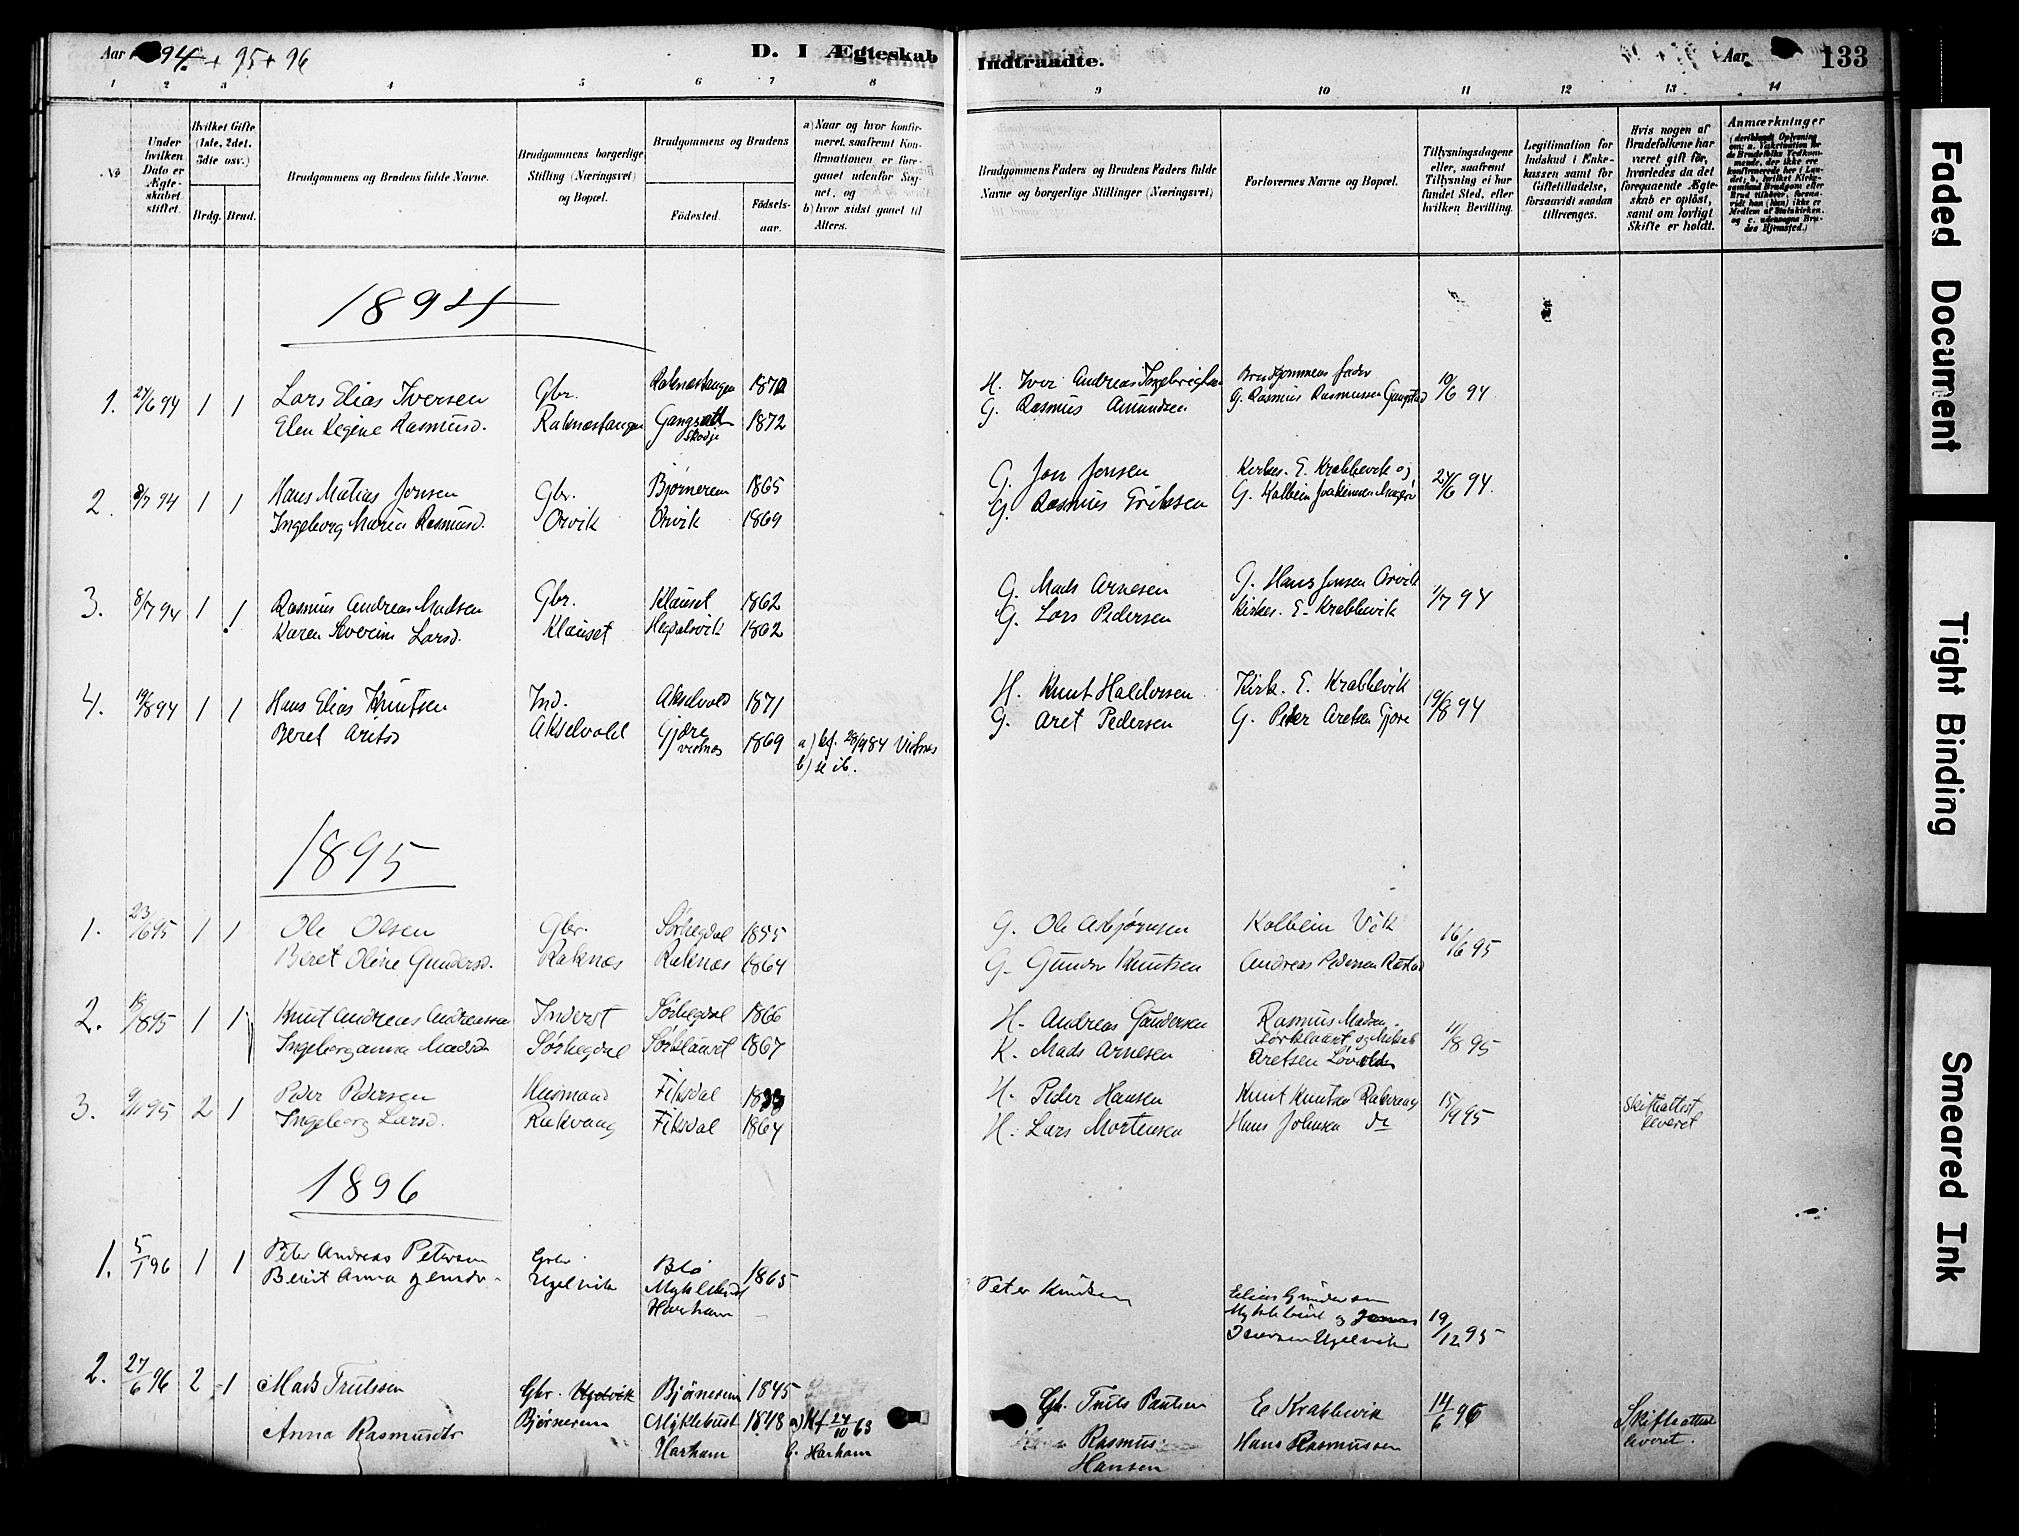 Aar 94. + 95 + 96
D. I Ægteskab Indtraadte.
Aar 133
1 2 3 4 5 6 7 8 9 10 11 12 13 14
No
Under hvilken Dato er Ægteskabet stiftet.
Hvilket Gifte (1ste, 2det, 3dte osv.)
Brdg. Brud.
Brudgommens og Brudens fulde Navne.
Brudgommens borgerlige Stilling (Næringsvei) og Bopæl.
Brudgommens og Brudens
Fødested. Fødselsaar.
a) Naar og hvor konfirmeret, saafremt Konfirmationen er foregaaet udenfor Sognet, og
b) hvor sidst gaaet til Alters.
Brudgommens Faders og Brudens Faders fulde Navne og borgerlige Stillinger (Næringsvei)
Forlovernes Navne og Bopæl.
Tillysningsdagene eller, saafremt Tillysning ei har fundet Sted, efter hvilken Bevilling.
Legitimation for Indskud i Enkekassen samt for Giftetilladelse, forsaavidt saadan tiltrænges.
Hvis nogen af Brudefolkene har været gift før, hvorledes da det foregaaende Ægteskab er opløst, samt om lovligt Skifte er holdt.
Anmærkninger
1894
1. 24/6 94 1 1 Lars Elias Iversen Gbr. Raknestangen 1870 H. Iver Andreas Ingebrigtsen Brudgommens fader 10/6 94
Elen Regine Rasmusd. Raknestangen Gangstad Skodje 1872 G. Rasmus Amundsen G. Rasmus Rasmussen Gangstad
2. 8/7 94 1 1 Hans Matias Jonsen Gbr. Bjørnerem 1865 G. Jon Jonsen Kirkes. E. Krabbevik og 24/6 94.
Ingeborg Maria Rasmusd. Orvik Orvik 1869 G. Rasmus Eriksen G. Kolbein Joakimsen
3. 8/7 94 1 1 Rasmus Andreas Madsen Gbr. Klauset 1862 G. Mads Arnesen G. Hans Jonsen Orvik 1/7 94
Karen Severine Larsd. Klauset Hegdalsvik 1862 G. Lars Pedersen Kirkes. E. Krabbevik
4. 19/8 94 1 1 Hans Elias Knutsen Ind. Akselvold 1871 H. Knut Haldorsen Kirk. E. Krabbevik 19/8 94
Beret Aretsd Akselvold Gjøre Vestnes 1869 a) kf. 28/9 84 Vestnes G. Aret Pedersen G. Peter Aretsen Gjøre
b) se ib.
1895
1. 23/6 95 1 1 Ole Olsen Gbr. Sørhegdal 1855 G. Ole Asbjørnsen Kolbein Vik 16/6 95
Beret Oline Gundersd. Raknes Raknes 1864 G. Gunder Knutsen Andreas Pedersen Rostad
2. 18/8 95 1 1 Knut Andreas Andreassen Inderst Sørhegdal 1866 H. Andreas Gundersen Rasmus Madsen 11/8 95
Ingeborganna Madsd Sørhegdal Sørklauset 1867 K. Mads Arnesen Sørklauset og
Aretsen Løvolden
3. 9/11 95 2 1 Peder Pedersen Husmand Fiksdal 1833 H. Peder Hansen Knut Knutsen Rakvaag 15/9 95 Skifteattest
Ingeborg Larsd. Rakvaag Fiksdal 1864 H. Lars Mortensen Hans Johnsen do leveret
1896
1. 5/1 96 1 1 Peter Andreas Petersen Gbr. Blø 1865 Peter Knudsen Elias Gundersen
Berit Anna Ugelvik Myklebust Myklebust og Jonas 19/12 95
Harham Iversen Ugelvik
2. 27/6 96 2 1 Mads Trulssen Gbr. Ugelvik Bjørnerem 1845 Gb. Truls Paulsen E Krabbevik 14/6 96 Skifteattest
Anna Rasmusdtr Bjørnerem Myklebust 1848 a) Kf 24/10 63 Rasmus Hans Rasmussen leveret.
Harham b. Harham Hansen
Faded Document
Tight Binding
Smeared Ink